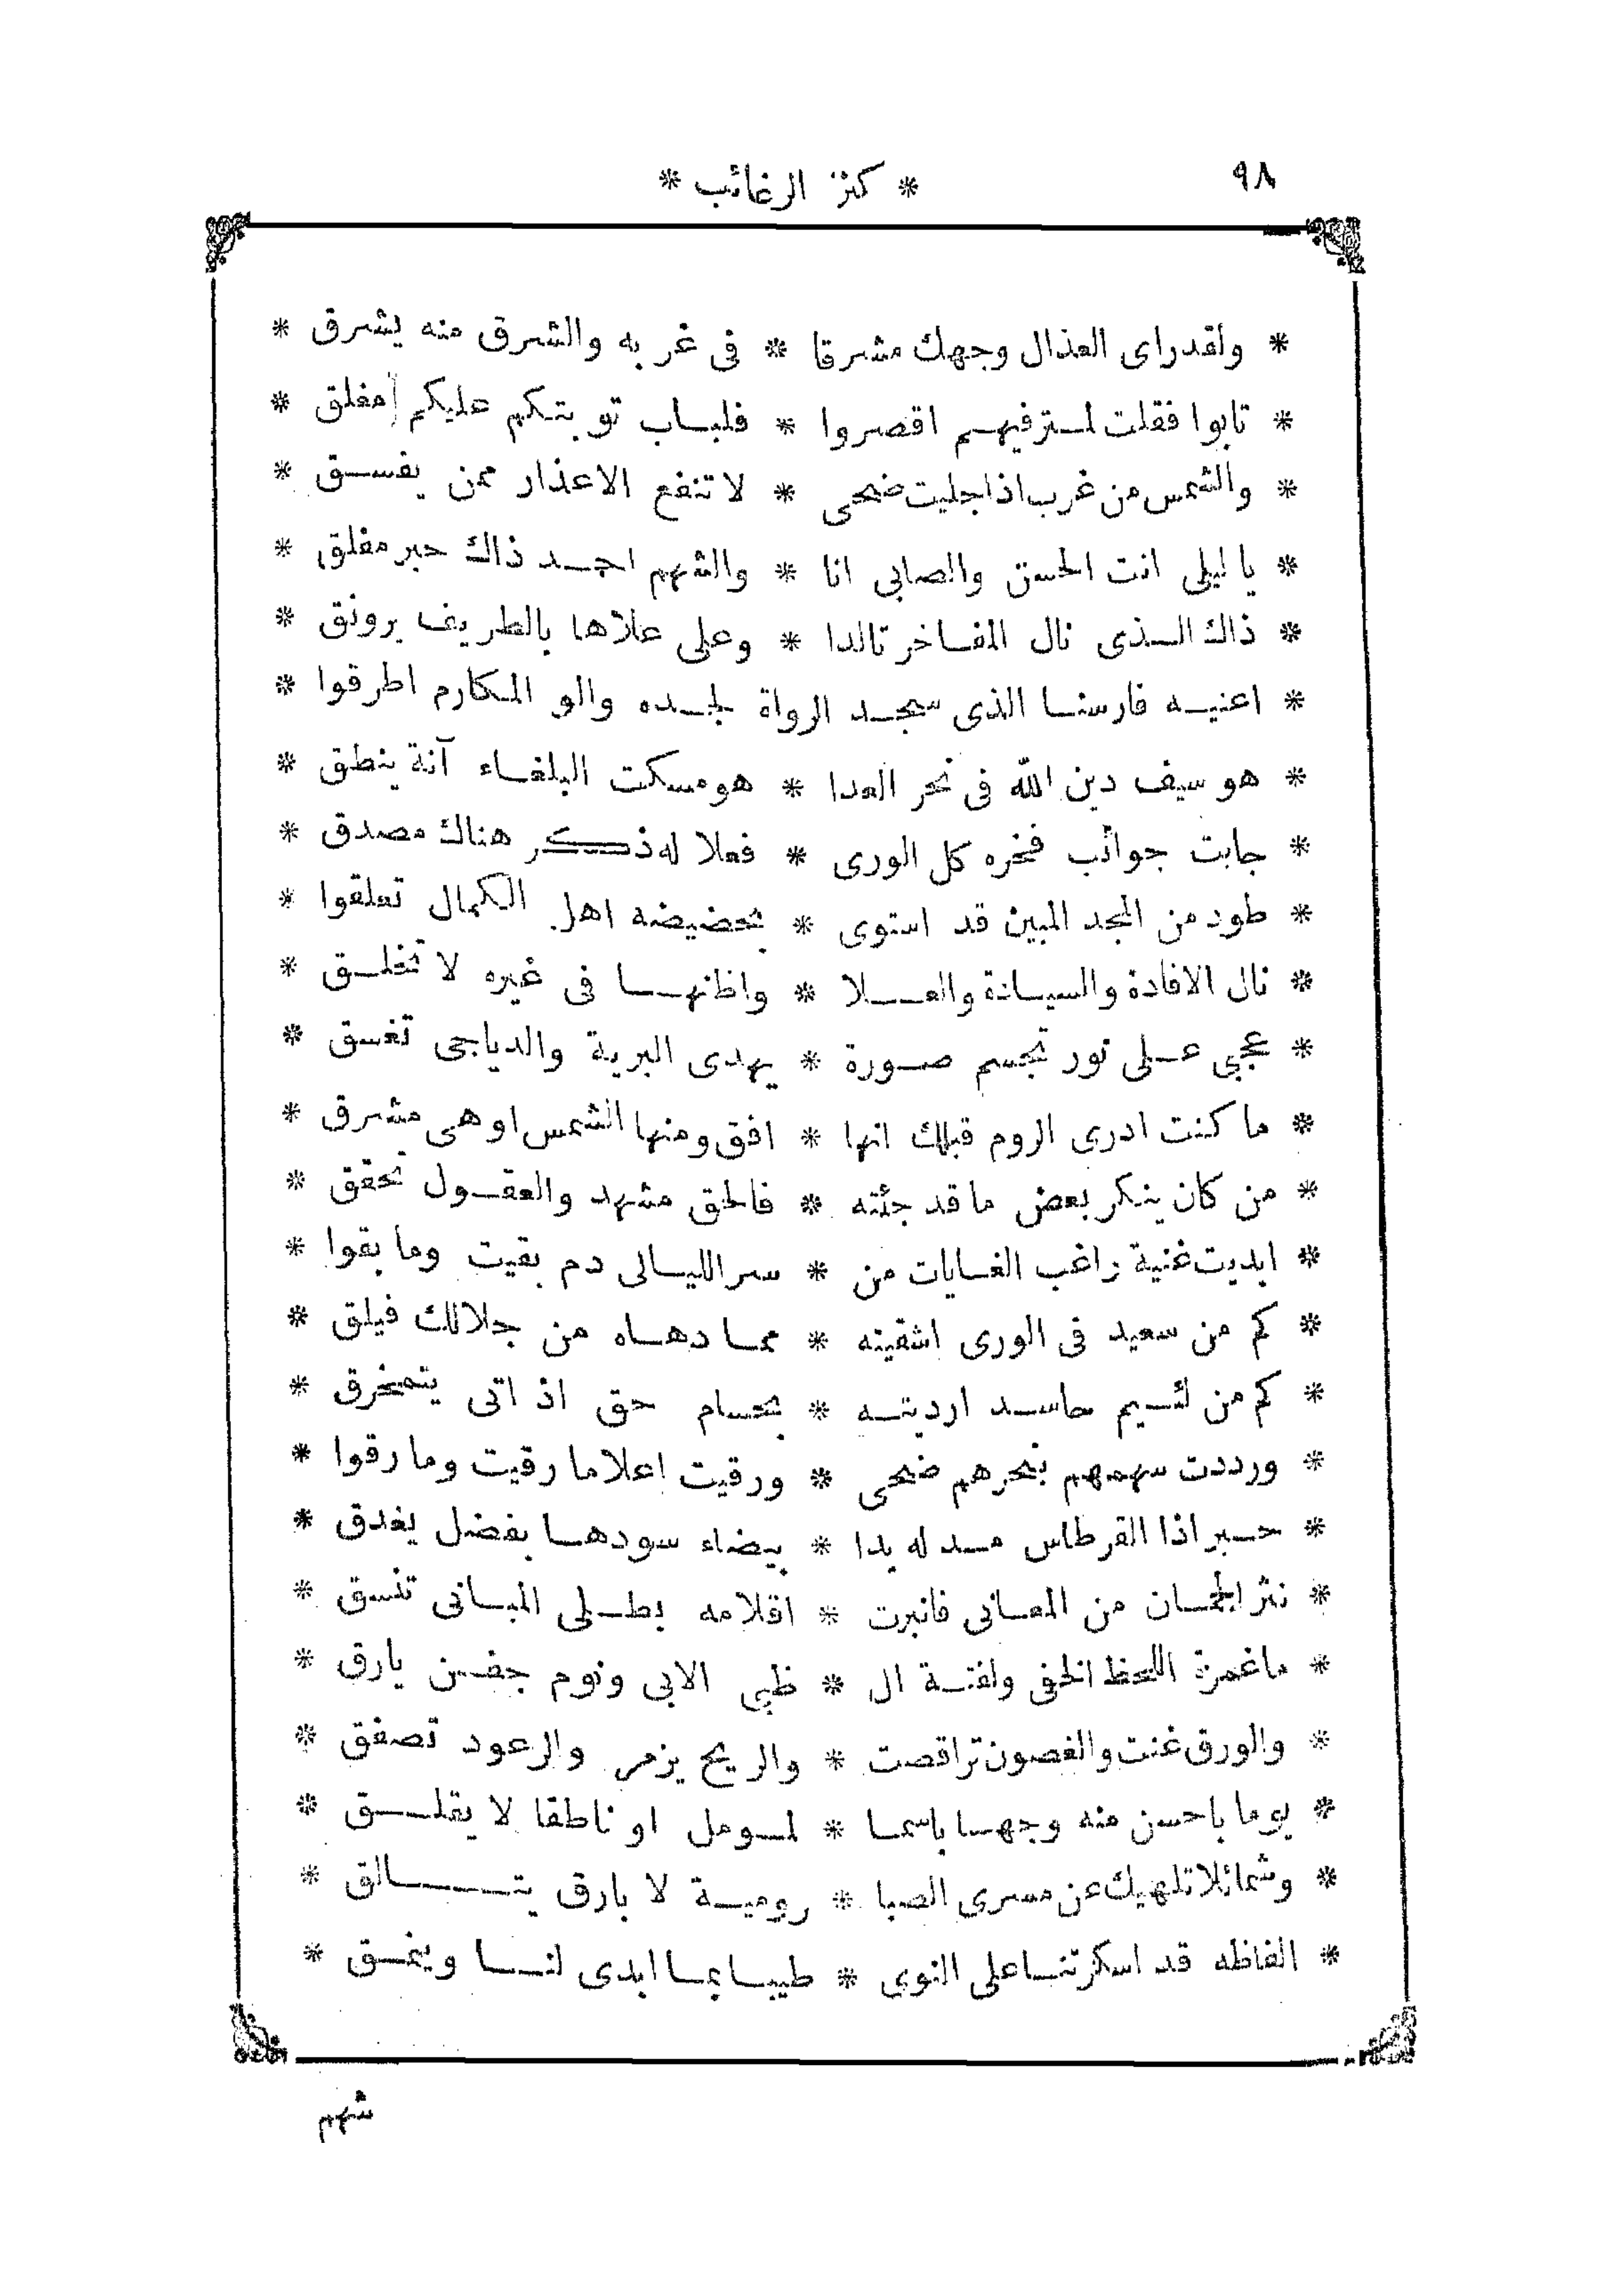 ٩٨
* كنز الرغائب *
* ولقدراى العذال وجهك مشرقا * فى غربه والشرق منه يشرق *
* تابوا فقلت لمسترفيهم اقصروا * فلباب توبتكم عليكم مغلق *
* والشمس من غرب اذا جليت ضحى * لا تنفع الاعذار ممن يفسق *
* يا ليلى انت الحسن والصابى انا * والشهم احمد ذاك حبر مفلق *
* ذاك الذى نال المفاخر تالدا * وعلى علاها بالطريف يرونق *
* اعنيه فارسنا الذى سجد الرواة لمجده والو المكارم اطرقوا *
* هو سيف دين الله فى نحر العدا * هو مسكت البلغاء آنة ينطق *
* جابت جوائب فخره كل الورى * فعلا له ذكر هناك مصدق *
* طود من المجد المبين قد استوى * بحضيضه اهل الكمال تعلقوا *
* نال الافادة والسيادة والعلا * واظنها فى غيره لا تخلق *
* عجبى على نور تجسم صورة * يهدى البرية والدياجى تغسق *
* ما كنت ادرى الروم قبلك انها * افق ومنها الشمس او هى مشرق *
* من كان ينكر بعض ما قد جئته * فالحق مشهد والعقول تحقق *
* ابديت غنية راغب الغايات من * سر الليالى دم بقيت وما بقوا *
* كم من سعيد فى الورى اشقيته * مما دهاه من جلالك فيلق *
* كم من لئيم حاسد ارديته * بحسام حق اذ اتى يتمخرق *
* ورددت سهمهم بنحرهم ضحى * ورقيت اعلاما رقيت وما رقوا *
* حبر اذا القرطاس مد له يدا * بيضاء سودها بفضل يغدق *
* نثر الجمان من المعانى فانبرت * اقلامه بطلى المبانى تنسق *
* ما غمزة اللحظ الخفى ولفتة ال * ظبى الابى ونوم جفن يارق *
* والورق غنت والغصون تراقصت * والريح يزمر والرعود تصفق *
* يوما باحسن منه وجها باسما * لمومل او ناطقا لا يقلق *
* وشمائلا تلهيك عن مسرى الصبا * رومية لا بارق يتالق *
* الفاظه قد اسكرتنا على النوى * طيبا بما ابدى لنا وينمق *
شهم